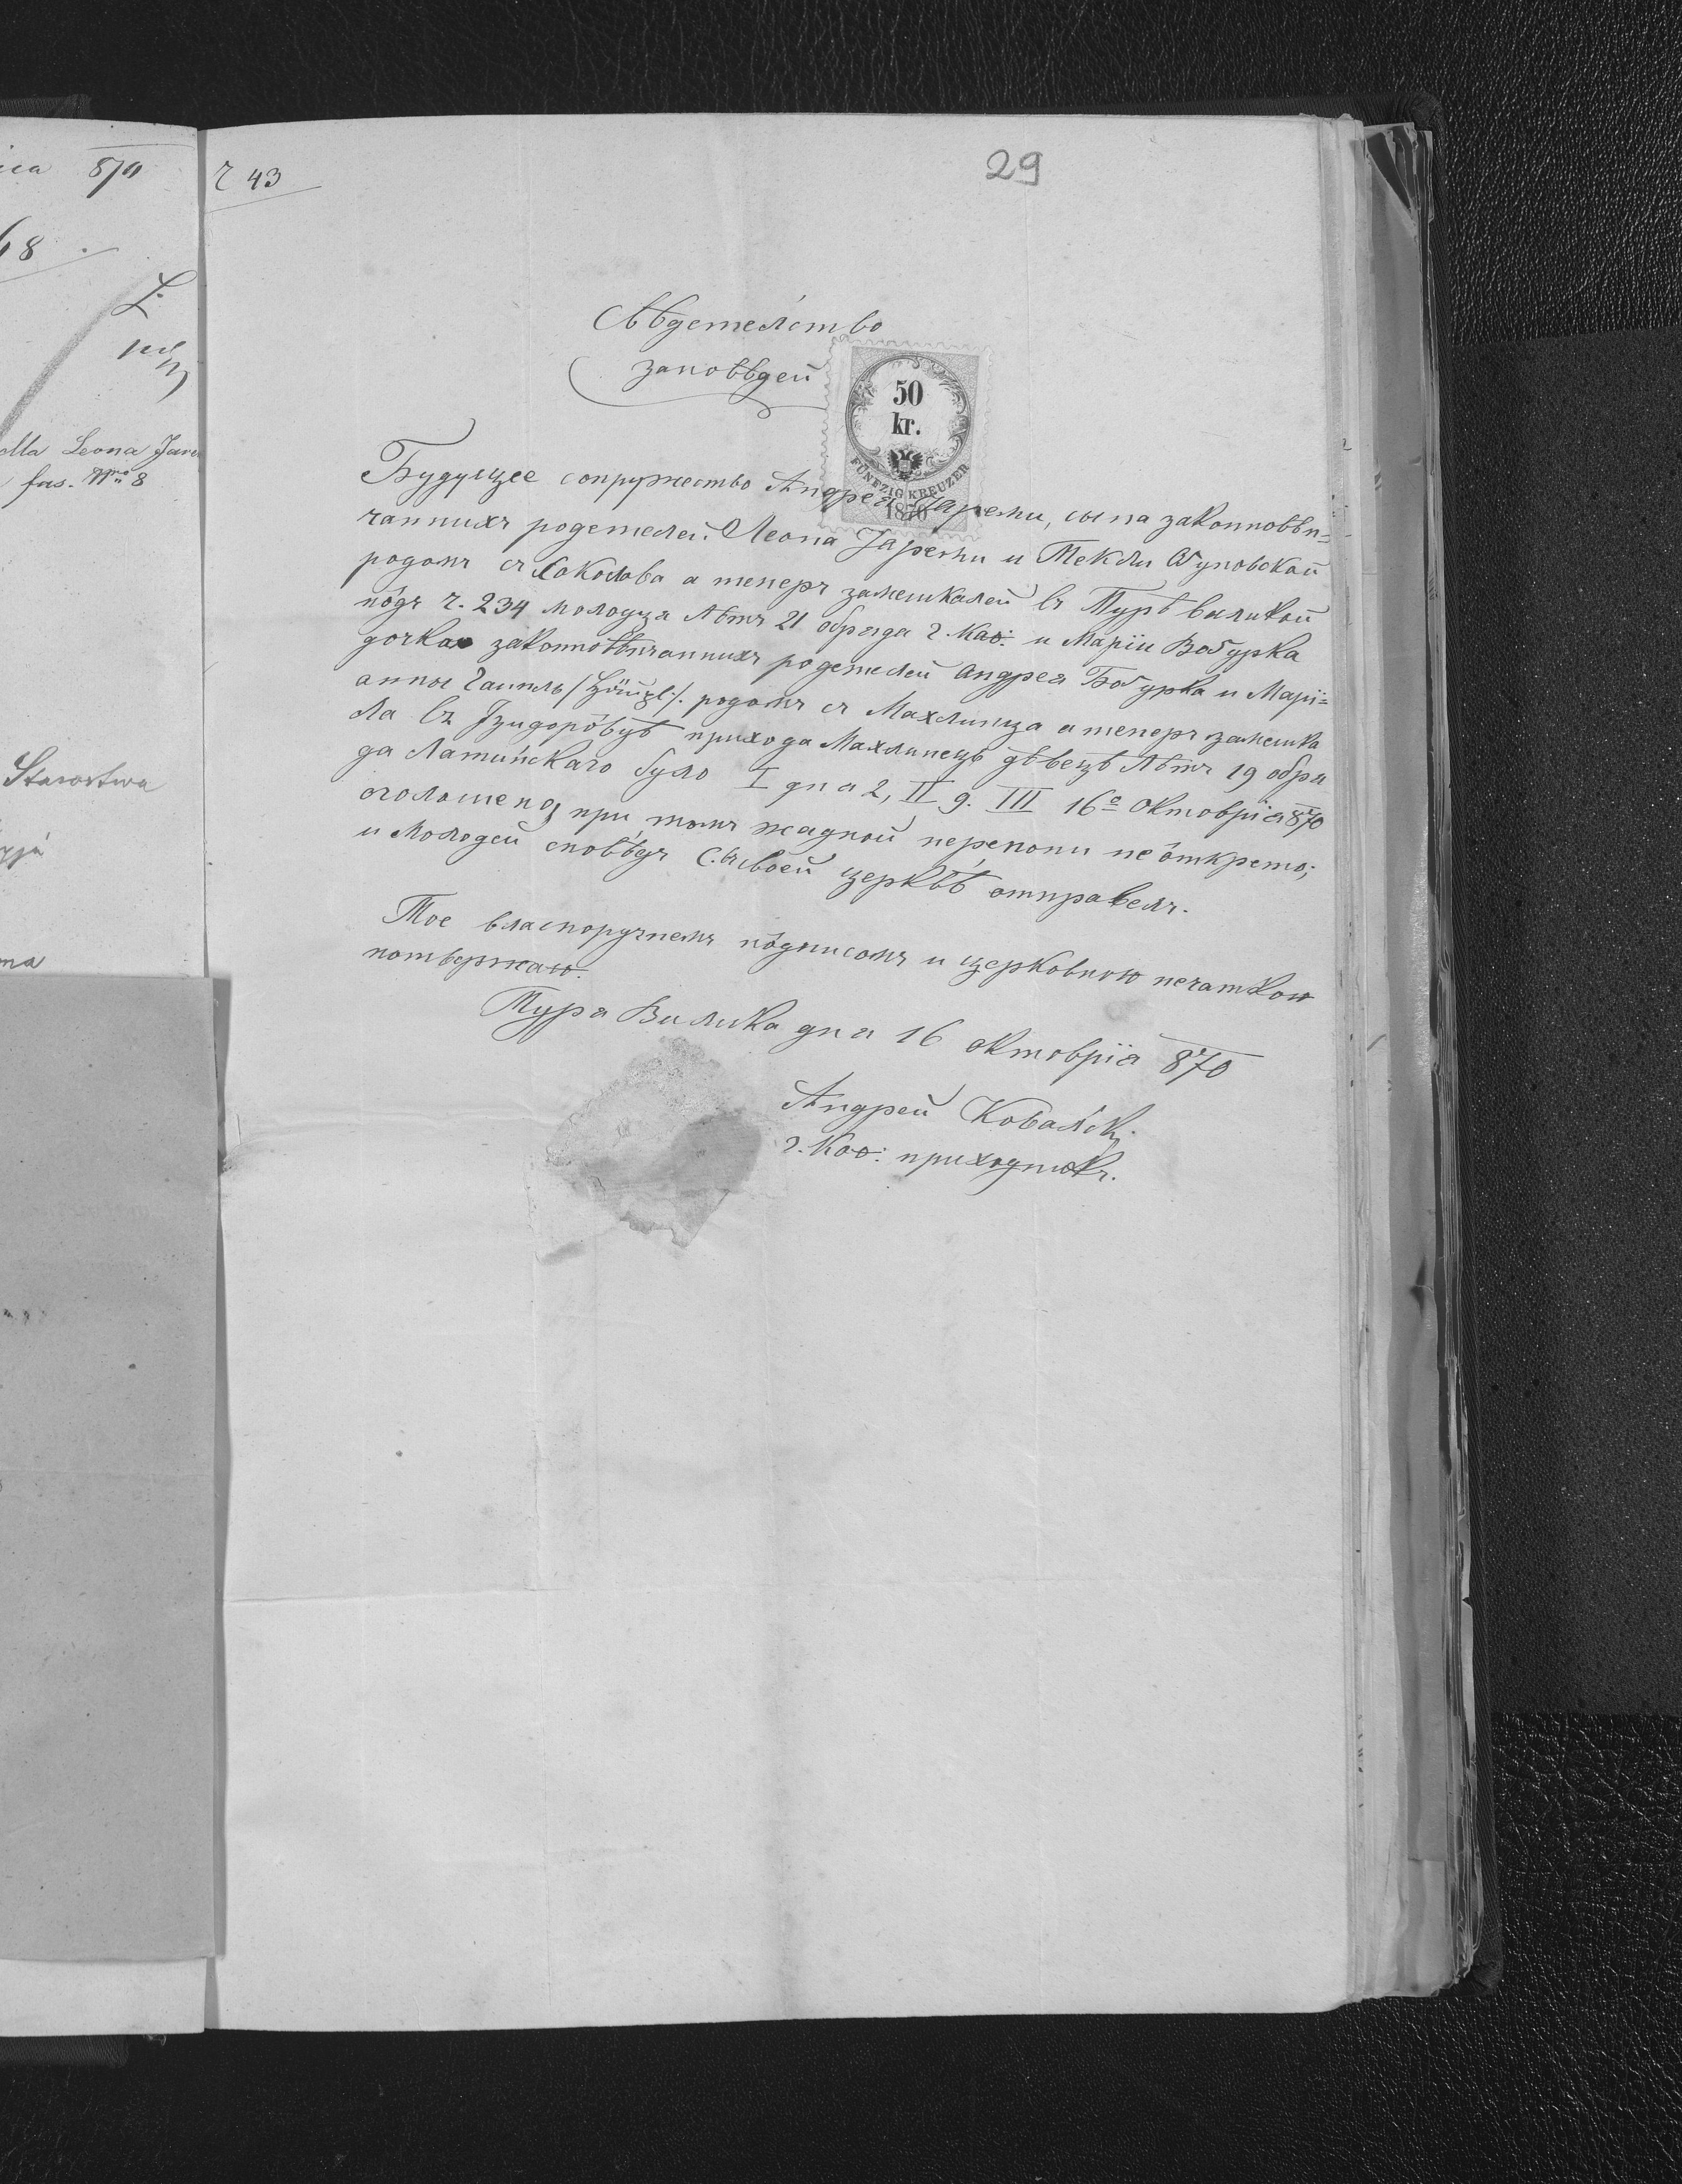 29
ч 43
870
68
Leona Jare
fas. Nro 8
Starostwa
Свѣдетельство
заповѣдей
50
kr.
FÜNFZIG KREUZER
1870
Будущее сопружество Андрея Яремы, сына законновѣн=
чанныхъ родетелей Леона Яремы и Теклы Обуховской
родомъ съ Соколова а теперъ замешкалей въ Турѣ великой
пôдъ ч. 234 молодця лѣтъ 21 обряда г. каѳ: и Маріи Бобурка
дочка законновѣнчанныхъ родетелей Андрея Бобурка и Марі=
анны родомъ съ Махлинца а теперъ замешка
ла въ Ізидорôвцѣ прихода Махлинець дѣвецѣ лѣтъ 19 обря
да Латинского було I дня 2, II 9. III 16го Октоврія 870
оголошено, при томъ жадной перепони не ôткрето;
и молодей сповѣдь въ своей церквѣ отправелъ.
Тое власноручнемъ пôдписомъ и церковною печаткою
потвержаю.
Тура Велика дня 16 октоврія 870
Андрей Ковальскі
г. каѳ: приходникъ.